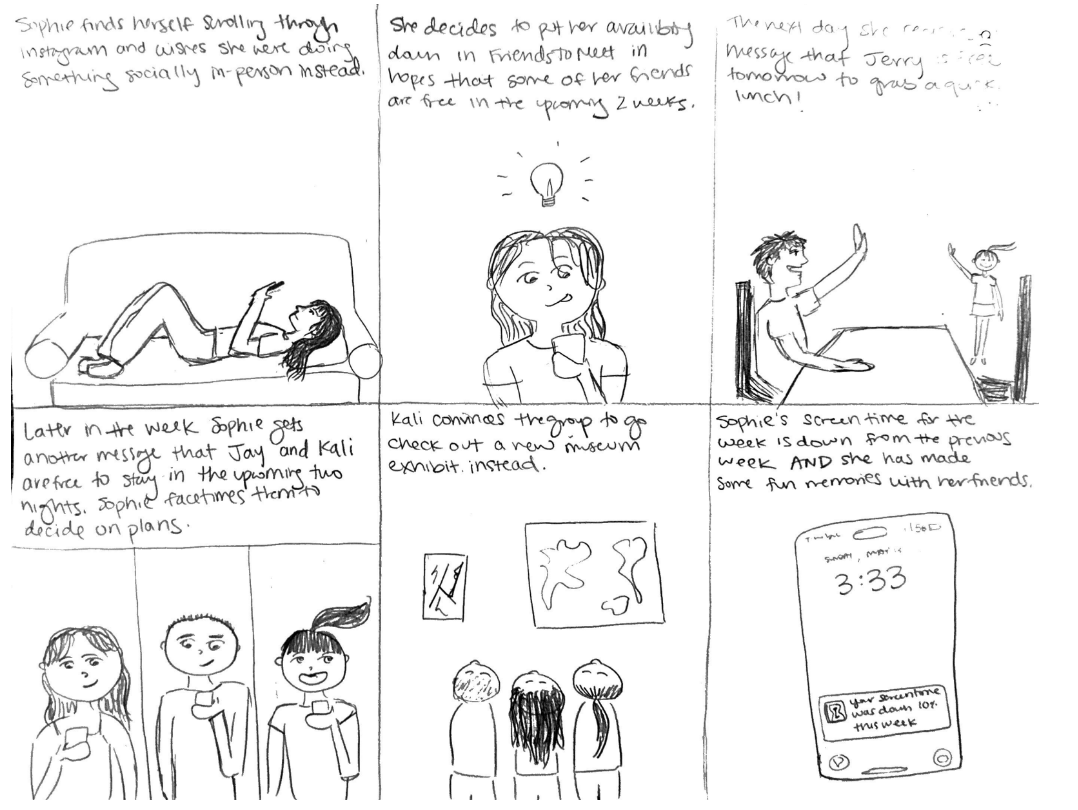 Sophie finds herself scrolling through
instagram and wishes she were doing
something socially in-person instead.
She decides to put her availibility
down in FriendstoMeet in
hopes that some of her friends
are free in the upcoming 2 weeks.
The next day she
message that Jerry is free
tomorrow to grab a quick
lunch!
Later in the week Sophie gets
another message that Jay and Kali
are free to stay in the upcoming two
nights. Sophie facetimes them to
decide on plans.
Kali convinces the group to go
check out a new museum
exhibit instead.
Sophie's screen time for the
week is down from the previous
week AND she has made
some fun memories with her friends.
SUNDAY, MAY
3:33
your screentime
was down 10%
this week